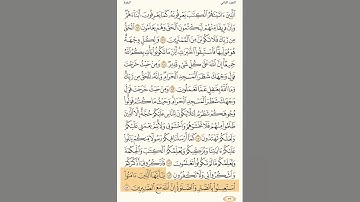 الجزء الثاني البقرة
ٱلَّذِينَ ءَاتَيْنَٰهُمُ ٱلْكِتَٰبَ يَعْرِفُونَهُۥ كَمَا يَعْرِفُونَ أَبْنَآءَهُمْ
وَإِنَّ فَرِيقًا مِّنْهُمْ لَيَكْتُمُونَ ٱلْحَقَّ وَهُمْ يَعْلَمُونَ
ٱلْحَقُّ مِن رَّبِّكَ فَلَا تَكُونَنَّ مِنَ ٱلْمُمْتَرِينَ وَلِكُلٍّ وِجْهَةٌ
هُوَ مُوَلِّيهَا فَٱسْتَبِقُوا۟ ٱلْخَيْرَٰتِ أَيْنَ مَا تَكُونُوا۟ يَأْتِ بِكُمُ ٱللَّهُ
جَمِيعًا إِنَّ ٱللَّهَ عَلَىٰ كُلِّ شَىْءٍ قَدِيرٌ وَمِنْ حَيْثُ خَرَجْتَ فَوَلِّ
وَجْهَكَ شَطْرَ ٱلْمَسْجِدِ ٱلْحَرَامِ وَإِنَّهُۥ لَلْحَقُّ مِن رَّبِّكَ
وَمَا ٱللَّهُ بِغَٰفِلٍ عَمَّا تَعْمَلُونَ وَمِنْ حَيْثُ خَرَجْتَ فَوَلِّ
وَجْهَكَ شَطْرَ ٱلْمَسْجِدِ ٱلْحَرَامِ وَحَيْثُ مَا كُنتُمْ فَوَلُّوا۟
وُجُوهَكُمْ شَطْرَهُۥ لِئَلَّا يَكُونَ لِلنَّاسِ عَلَيْكُمْ حُجَّةٌ إِلَّا ٱلَّذِينَ
ظَلَمُوا۟ مِنْهُمْ فَلَا تَخْشَوْهُمْ وَٱخْشَوْنِى وَلِأُتِمَّ نِعْمَتِى عَلَيْكُمْ
وَلَعَلَّكُمْ تَهْتَدُونَ كَمَآ أَرْسَلْنَا فِيكُمْ رَسُولًا مِّنكُمْ يَتْلُوا۟
عَلَيْكُمْ ءَايَٰتِنَا وَيُزَكِّيكُمْ وَيُعَلِّمُكُمُ ٱلْكِتَٰبَ وَٱلْحِكْمَةَ
وَيُعَلِّمُكُم مَّا لَمْ تَكُونُوا۟ تَعْلَمُونَ فَٱذْكُرُونِىٓ أَذْكُرْكُمْ
وَٱشْكُرُوا۟ لِى وَلَا تَكْفُرُونِ يَٰٓأَيُّهَا ٱلَّذِينَ ءَامَنُوا۟
ٱسْتَعِينُوا۟ بِٱلصَّبْرِ وَٱلصَّلَوٰةِ إِنَّ ٱللَّهَ مَعَ ٱلصَّٰبِرِينَ